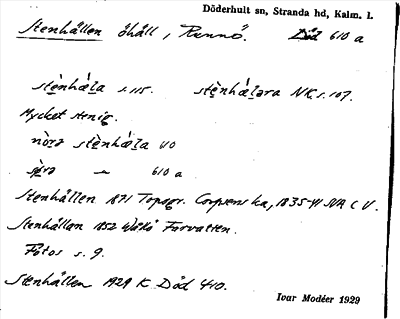 Döderhult sn, Stranda hd, Kalm. l.
Stenhållen öhåll, Runnö. Död 610 a
stènhǻḷa s.115. stènhǻḷəra NK s.107.
Mycket stenig.
nòrə stènhǻḷa 410
sø̀rə — 610 a
Stenhållen 1871 Topogr. Corpsens ka, 1835-41
Stenhållan 1852 Farvatten.
Fotos s. 9.
Stenhållen 1929 K Död 410.
Ivar Modéer 1929